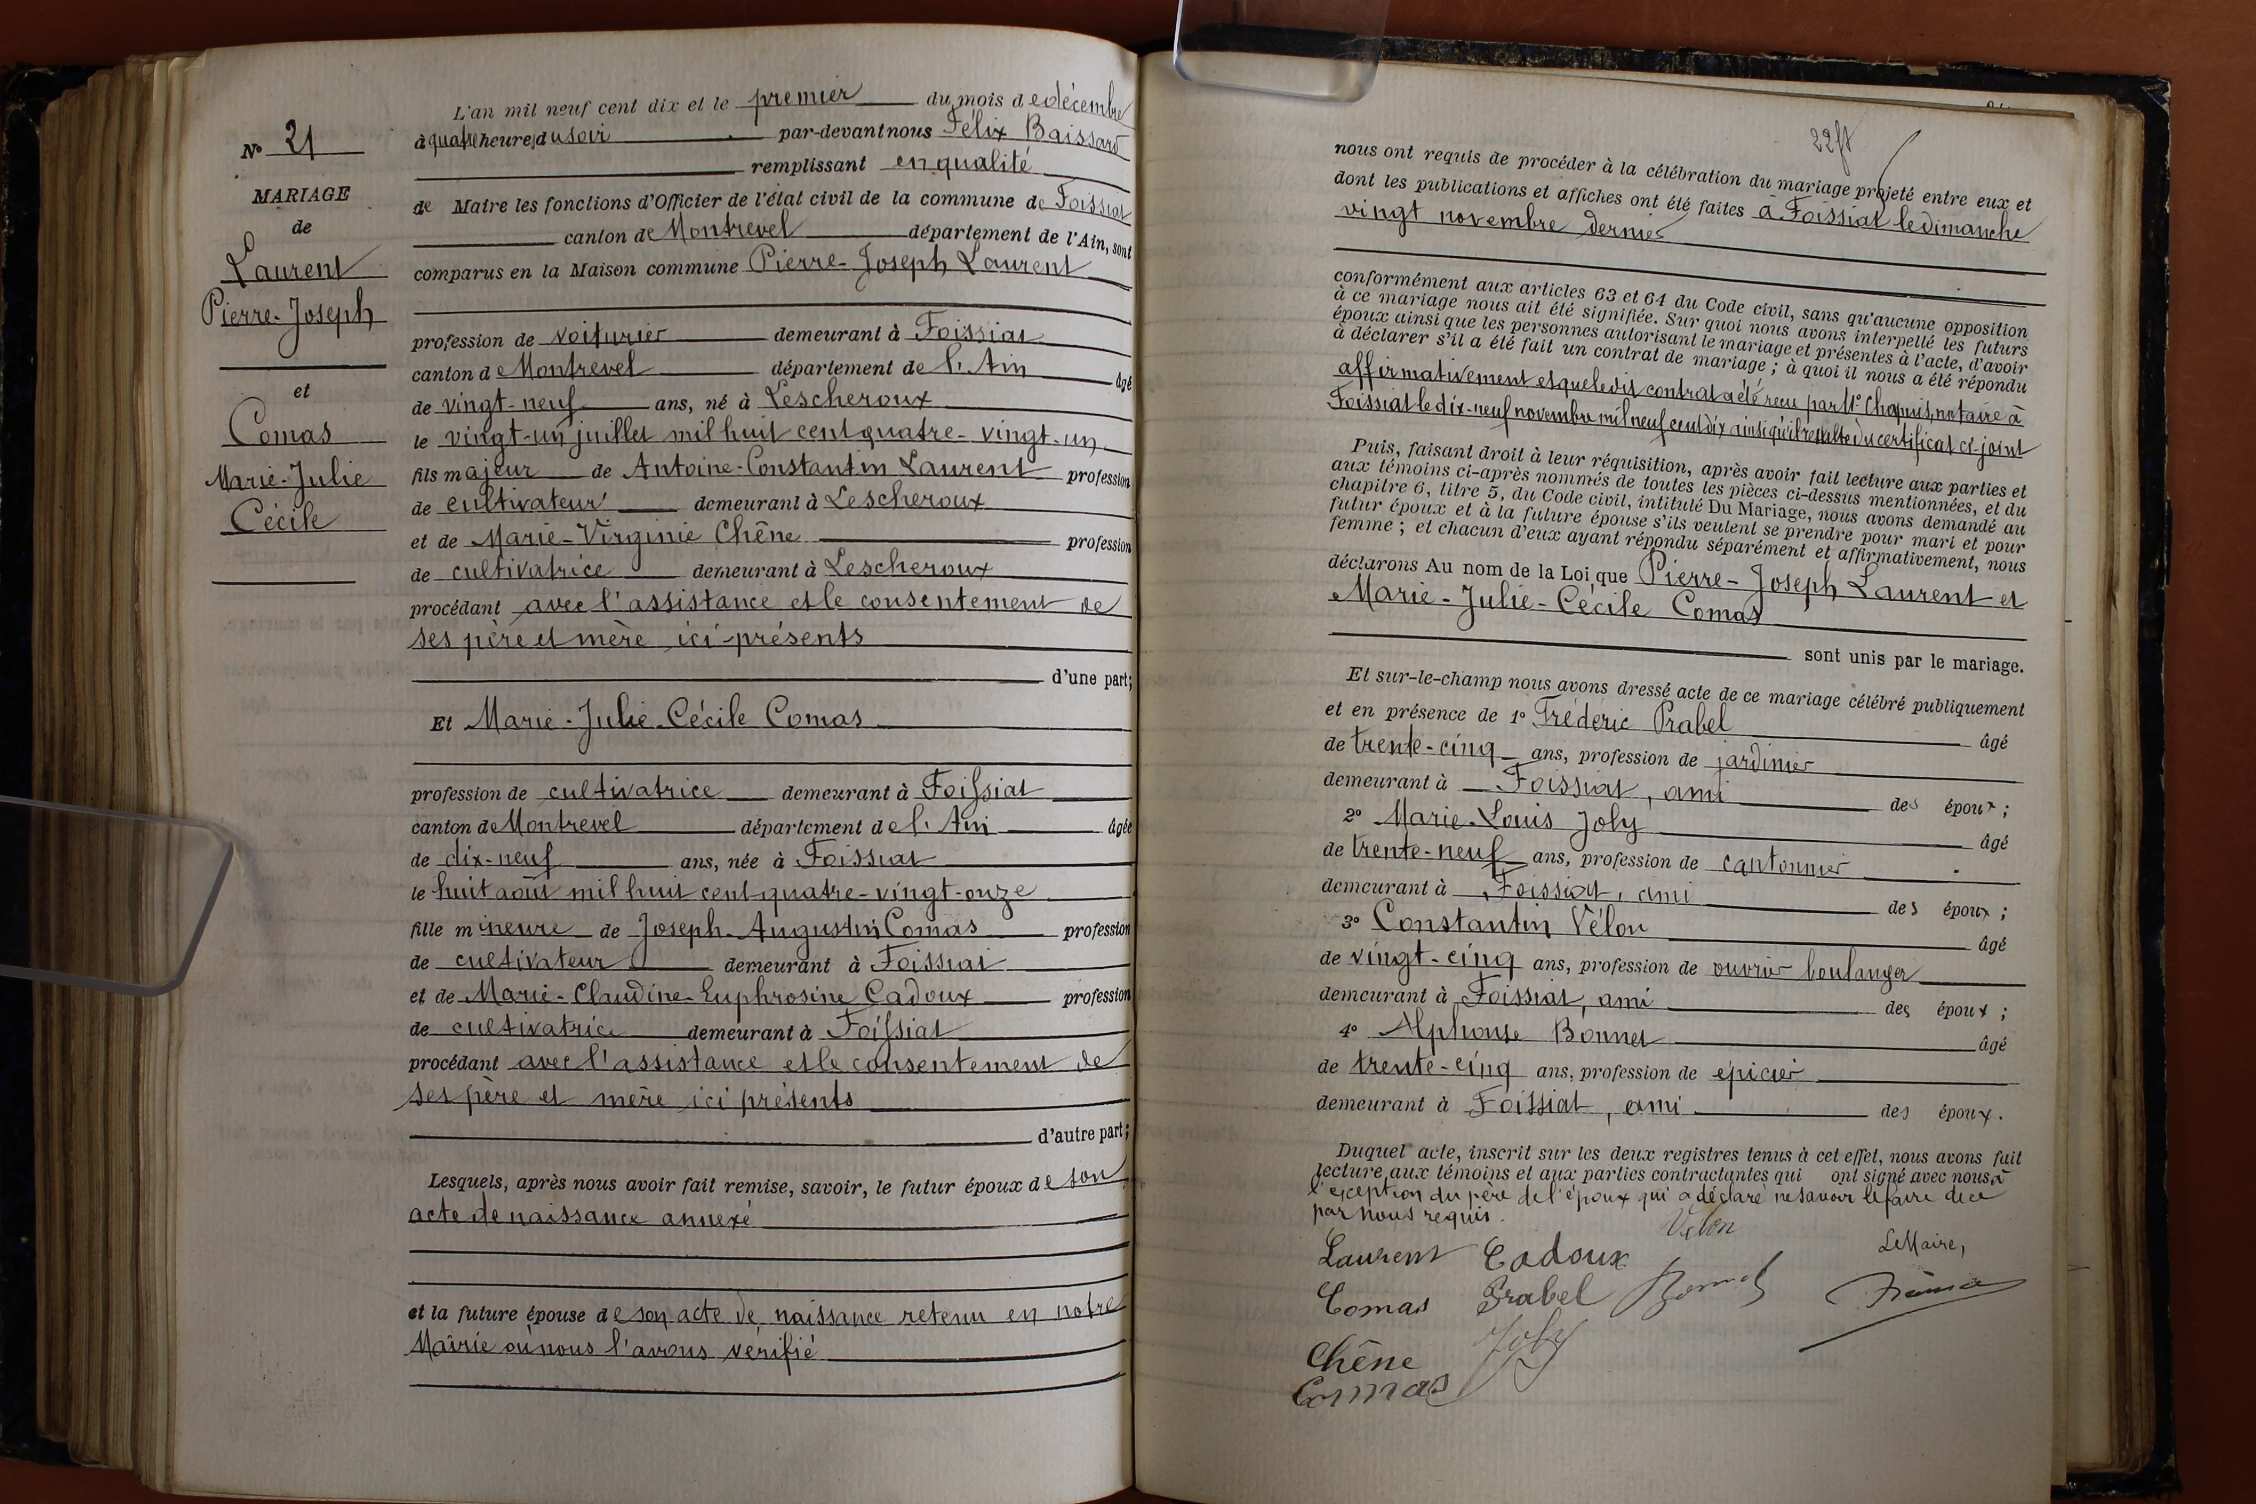 N° 21
MARIAGE
de
Laurent
Pierre-Joseph
et
Comas
Marie-Julie
Cécile
L'an mil neuf cent dix et le premier du mois de décembre
à quatre heures du soir par-devant nous Félix Baissard
remplissant en qualité
de Maire les fonctions d'Officier de l'état civil de la commune de Foissiat
canton de Montrevel département de l'Ain, sont
comparus en la Maison commune Pierre-Joseph Laurent
profession de voiturier demeurant à Foissiat
canton de Montrevel département de l'Ain âgé
de vingt-neuf ans, né à Lescheroux
le vingt-un juillet mil huit cent quatre-vingt-un
fils majeur de Antoine-Constantin Laurent profession
de cultivateur demeurant à Lescheroux
et de Marie-Virginie Chêne profession
de cultivatrice demeurant à Lescheroux
procédant avec l'assistance et le consentement de
ses père et mère ici-présents
d'une part;
Et Marie-Julie-Cécile Comas
profession de cultivatrice demeurant à Foissiat
canton de Montrevel département de l'Ain âgée
de dix-neuf ans, née à Foissiat
le huit août mil huit cent quatre-vingt-onze
fille mineure de Joseph-Augustin Comas profession
de cultivateur demeurant à Foissiat
et de Marie-Claudine-Euphrosine Cadoux profession
de cultivatrice demeurant à Foissiat
procédant avec l'assistance et le consentement de
ses père et mère ici présents
d'autre part;
Lesquels, après nous avoir fait remise, savoir, le futur époux de son
acte de naissance annexé
et la future épouse de son acte de naissance retenu en notre
Mairie où nous l'avons vérifié
nous ont requis de procéder à la célébration du mariage projeté entre eux et
dont les publications et affiches ont été faites à Foissiat le dimanche
vingt novembre dernier
conformément aux articles 63 et 64 du Code civil, sans qu'aucune opposition
à ce mariage nous ait été signifiée. Sur quoi nous avons interpellé les futurs
époux ainsi que les personnes autorisant le mariage et présentes à l'acte, d'avoir
à déclarer s'il a été fait un contrat de mariage; à quoi il nous a été répondu
affirmativement et que ledit contrat a été reçu par Me Chapuis, notaire à
Foissiat le dix-neuf novembre mil neuf cent dix ainsi qu'il résulte du certificat ci-joint
Puis, faisant droit à leur réquisition, après avoir fait lecture aux parties et
aux témoins ci-après nommés de toutes les pièces ci-dessus mentionnées, et du
chapitre 6, titre 5, du Code civil, intitulé Du Mariage, nous avons demandé au
futur époux et à la future épouse s'ils veulent se prendre pour mari et pour
femme; et chacun d'eux ayant répondu séparément et affirmativement, nous
déclarons Au nom de la Loi que Pierre-Joseph Laurent et
Marie-Julie-Cécile Comas
sont unis par le mariage.
Et sur-le-champ nous avons dressé acte de ce mariage célébré publiquement
et en présence de 1° Frédéric Prabel âgé
de trente-cinq ans, profession de jardinier
demeurant à Foissiat, ami des époux;
2° Marie-Louis Joly âgé
de trente-neuf ans, profession de cantonnier
demeurant à Foissiat, ami des époux;
3° Constantin Vélon âgé
de vingt-cinq ans, profession de ouvrier boulanger
demeurant à Foissiat, ami des époux;
4° Alphonse Bonnet âgé
de trente-cinq ans, profession de epicier
demeurant à Foissiat, ami des époux.
Duquel acte, inscrit sur les deux registres tenus à cet effet, nous avons fait
lecture aux témoins et aux parties contractantes qui ont signé avec nous à
l'exception du père de l'époux qui a déclaré ne savoir le faire de ce
par nous requis.
Velon
Laurent Cadoux Le Maire,
Comas Prabel Bonnet
Joly
Chêne
Comas